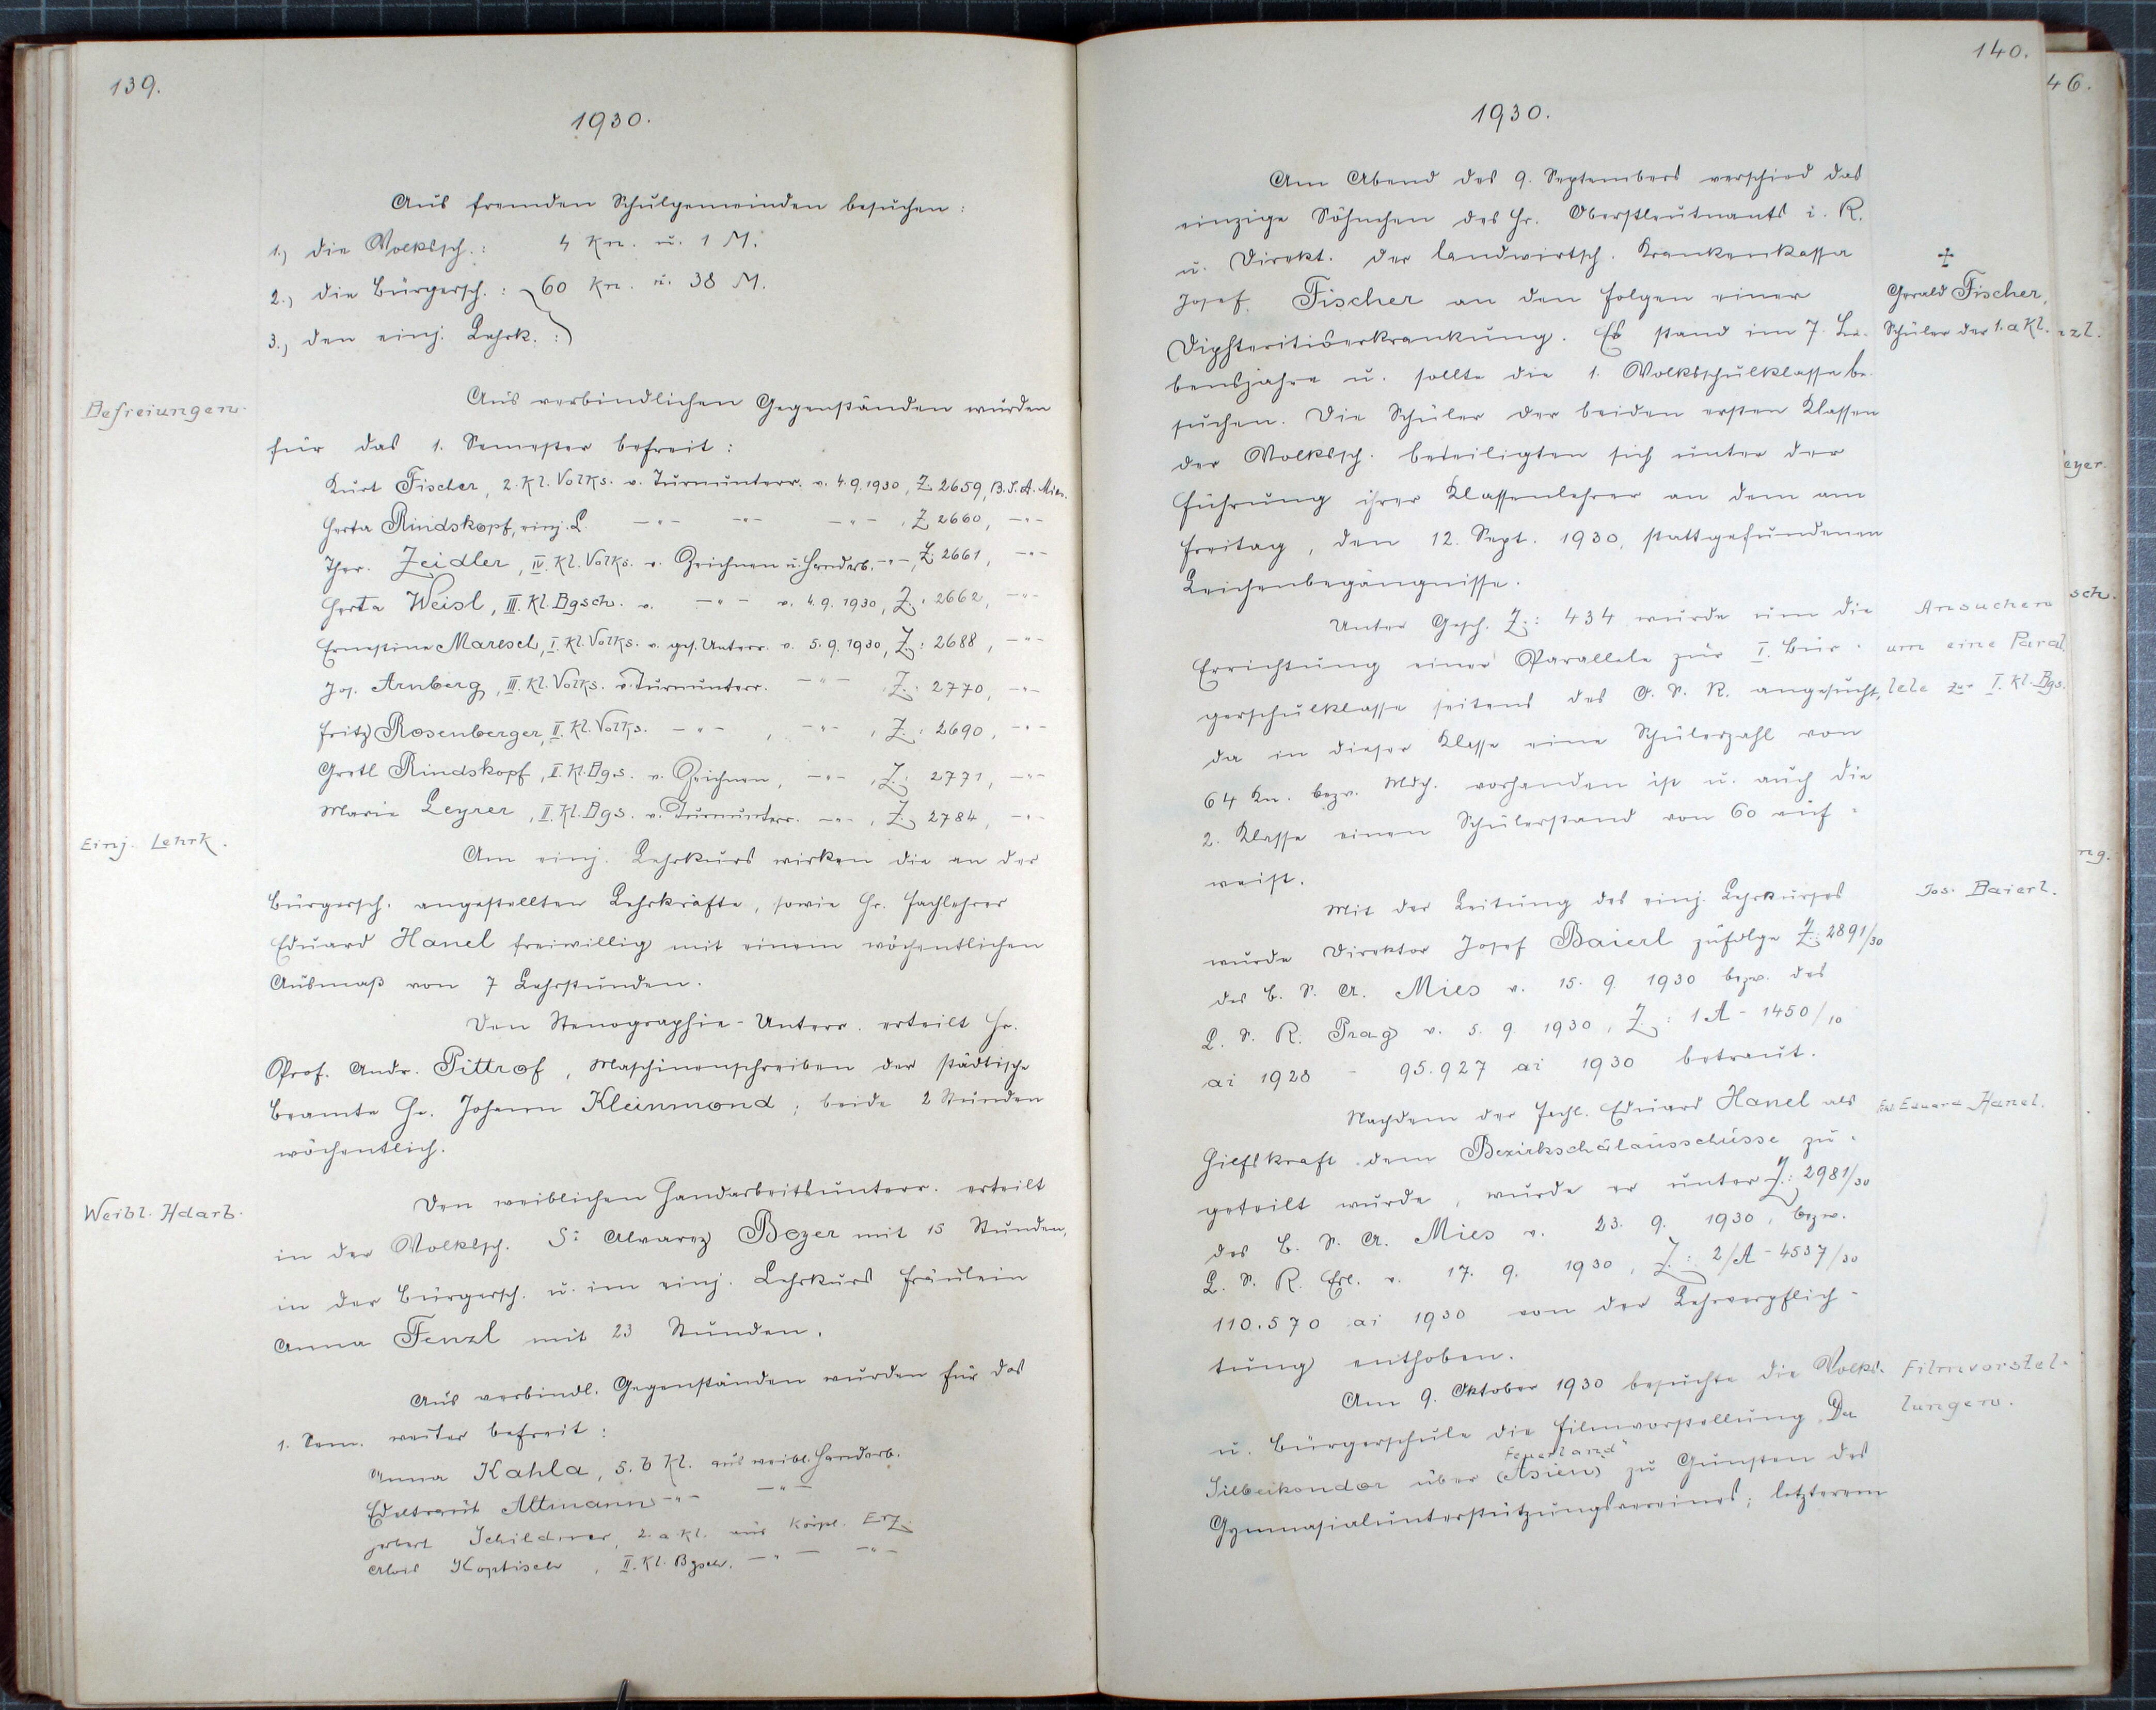 139.
1930.
Aus fremden Schulgemeinden besuchen:
1., die Volkssch.: 4 Kn. u. 1 M.
2., die Bürgersch.: 60 Kn. u. 38 M.
3., den einj. Lehrk.:
Befreiungen.
Aus verbindlichen Gegenständen wurden
für das 1. Semester befreit:
Kurt Fischer, 2. Kl. Volks. v. Turnunterr. v. 4.9.1930, Z. 2659, B.S.A. Mies.
Herta Rindskopf, einj. L. -"- -"- -"-, Z. 2660, -"-
Ther. Zeidler, IV. Kl. Volks. v. Zeichnen u. Handarb. -"-, Z: 2661, -"-
Herta Weisl, III. Kl. Bgsch. v. -"- v. 4.9.1930, Z.: 2662, -"-
Ernestine Maresch, I. Kl. Volks. v. ges. Unterr. v. 5.9.1930, Z.: 2688, -"-
Jos. Arnberg, III. Kl. Volks. v. Turnunterr. -"- Z.: 2770, -"-
Fritz Rosenberger, II. Kl. Volks. -"-, -"-, Z.: 2690, -"-
Gretl Rindskopf, II. Kl. Bgs. v. Zeichnen, -"-, Z.: 2771, -"-
Marie Leyrer, II. Kl. Bgs. v. Turnunterr. -"-, Z. 2784, -"-
Einj. Lehrk.
Am einj. Lehrkurs wirken die an der
Bürgersch. angestellten Lehrkräfte, sowie Hr. Fachlehrer
Eduard Hanel freiwillig mit einem wöchentlichen
Ausmaß von 7 Lehrstunden.
Den Stenographie-Unterr. erteilt Hr.
Prof. Andr. Pittrof, Maschinenschreiben der städtische
Beamte Hr. Johann Kleinmond; beide 2 Stunden
wöchentlich.
Weibl. Hdarb.
Den weiblichen Handarbeitsunterr. erteilt
in der Volkssch. S: Alvarez Bozer mit 15 Stunden,
in der Bürgersch. u. im einj. Lehrkurs Fräulein
Anna Fenzl mit 23 Stunden.
Aus verbindl. Gegenständen wurden für das
1. Sem. weiter befreit:
Anna Kahla, 5. b Kl. aus weibl. Handarb.
Edeltraut Altmann -"- -"-
Herbert Schildner, 2. a Kl. aus körpl. Erz.
Alois Koptisch, II. Kl. Bgsch. -"- -"-
140.
1930.
Am Abend des 9. Septembers verschied das
einzige Söhnchen des Hr. Oberstleutnants i. R.
u. Direkt. der landwirtsch. Krankenkassa
Josef Fischer an den Folgen einer
Diphteritiserkrankung. Es stand im 7. Le-
bensjahre u. sollte die 1. Volksschulklasse be-
suchen. Die Schüler der beiden ersten Klassen
der Volkssch. beteiligten sich unter der
Führung ihrer Klassenlehrer an dem am
Freitag, den 12. Sept. 1930, stattgefundenen
Leichenbegängnisse.
Gerald Fischer,
Schüler der 1. a Kl.
Unter Gesch. Z.: 434 wurde um die
Errichtung einer Parallele zur I. Bür-
gerschulklasse seitens des O. S. R. angesucht,
da in dieser Klasse eine Schülerzahl von
64 Kn. bezw. Mdch. vorhanden ist u. auch die
2. Klasse einen Schülerstand von 60 auf-
weist.
Ansuchen
um eine Paral-
lele zur I. Kl. Bgs.
Mit der Leitung des einj. Lehrkurses
wurde Direktor Josef Baierl zufolge Z.: 2891/30
des B. S. A. Mies v. 15. 9. 1930 bezw. des
L. S. R. Prag v. 5. 9. 1930, Z.: 1 A - 1450/10
ai 1928 - 95.927 ai 1930 betraut.
Jos. Baierl.
Nachdem der Fachl. Eduard Hanel als
Hilfskraft dem Bezirksschulausschusse zu-
geteilt wurde, wurde er unter Z.: 2981/30
des B. S. A. Mies v. 23. 9. 1930, bezw.
L. S. R. Erl. v. 17. 9. 1930, Z.: 2/A - 4537/30
110.570 ai 1930 von der Lehrverpflich-
tung enthoben.
Eduard Hanel.
Am 9. Oktober 1930 besuchte die Volks-
u. Bürgerschule die Filmvorstellung „Der
Feuerland"
Silberkondor über (Asien)" zu Gunsten des
Gymnasialunterstützungsvereines; letzterem
Filmvorstel-
lungen.
46.
nzl.
eyer.
sch.
ng.